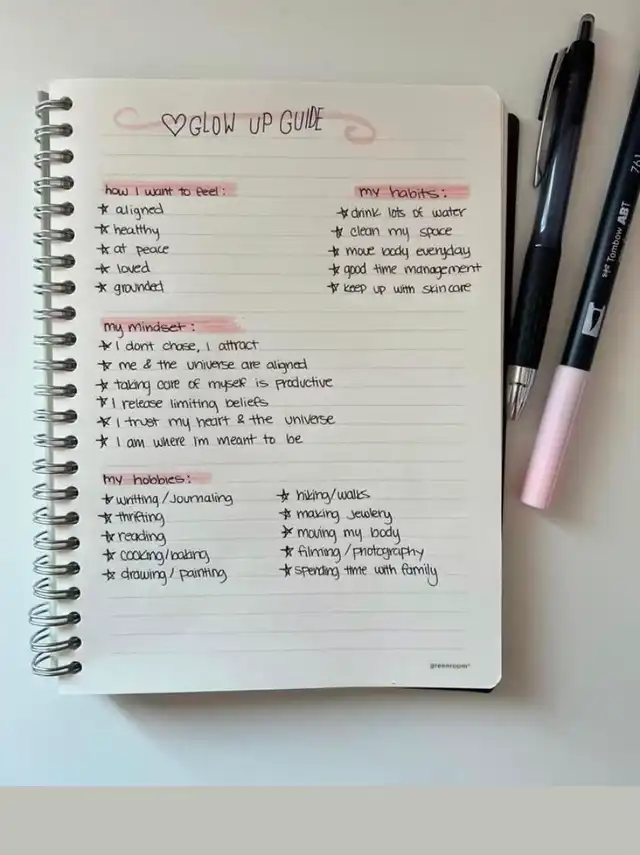 ♡GLOW UP GUIDE
how I want to feel:
☆ aligned
☆ healthy
☆ at peace
☆ loved
☆ grounded
my habits:
☆ drink lots of water
☆ clean my space
☆ move body everyday
☆ good time management
☆ keep up with skincare
my mindset:
☆ I dont chase, I attract
☆ me & the universe are aligned
☆ taking care of myself is productive
☆ I release limiting beliefs
☆ I trust my heart & the universe
☆ I am where Im meant to be
my hobbies:
☆ writting/Journaling
☆ thrifting
☆ reading
☆ cooking/baking
☆ drawing/painting
☆ hiking/walks
☆ making Jewlery
☆ moving my body
☆ filming/photography
☆ spending time with family
greenroom
Tombow ABT
761